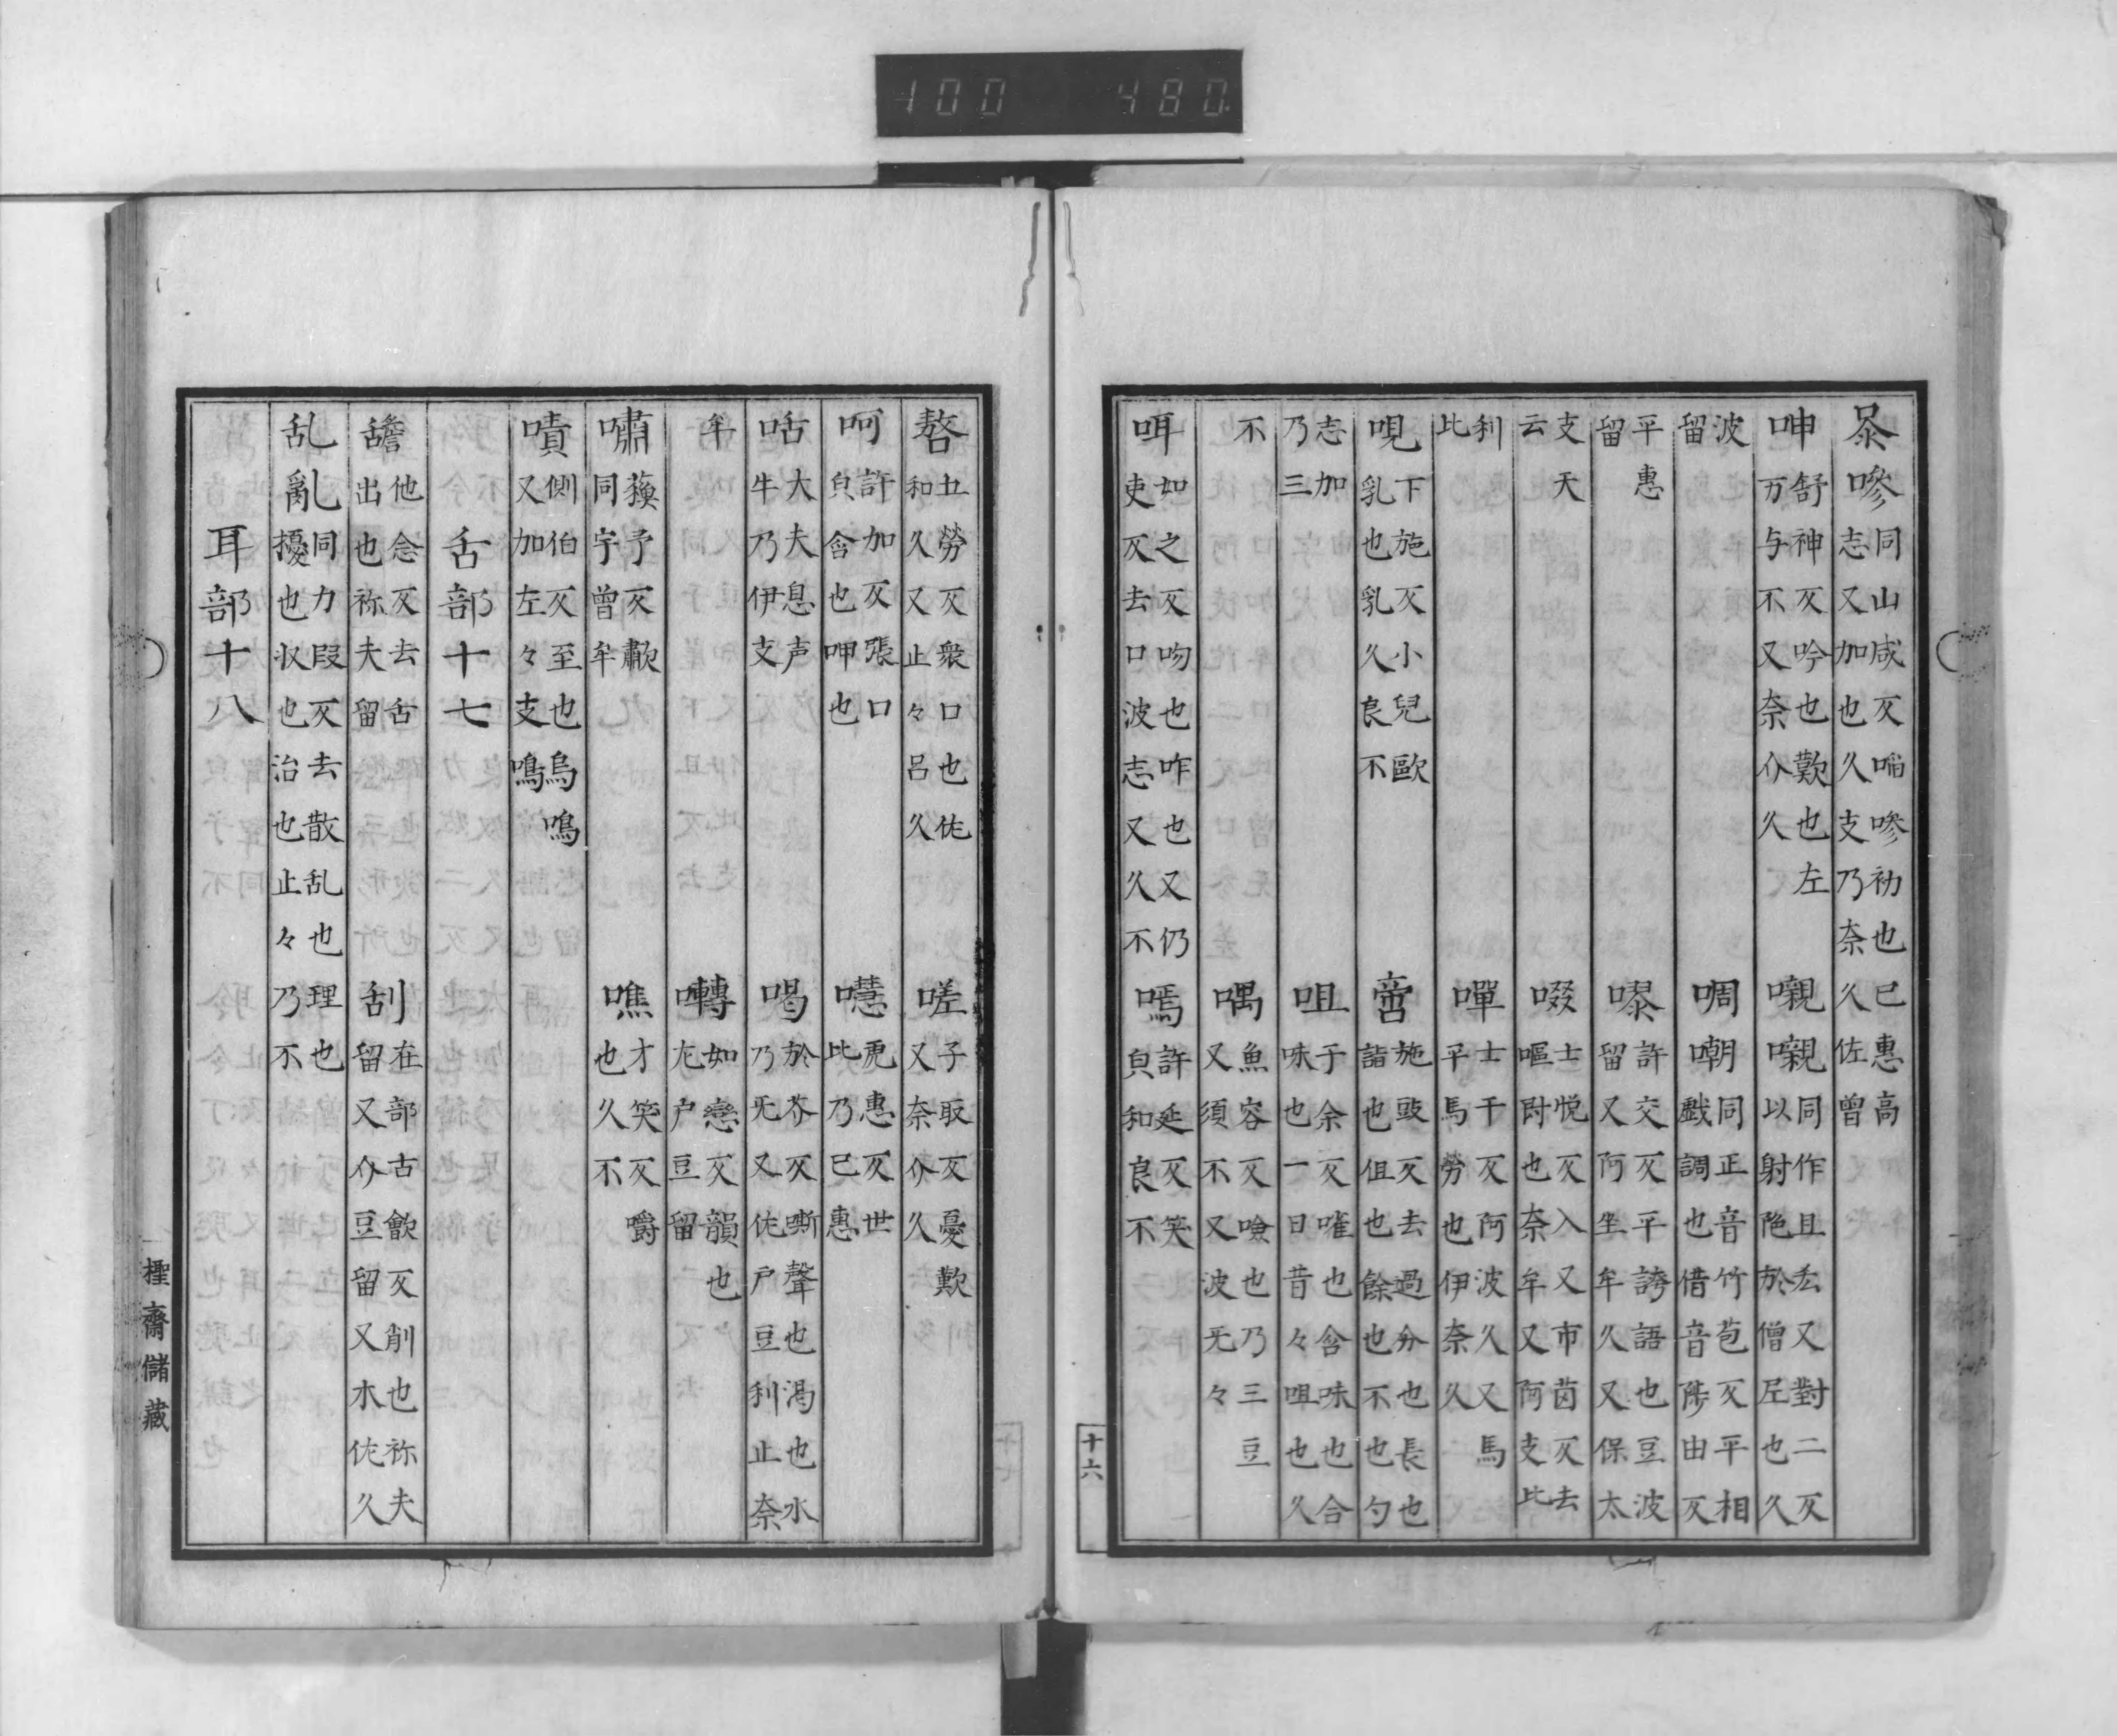 喿嘇同山咸反㗖嘇初也已惠高
志又加也久支乃奈久佐曽
呻舒神反吟也歎也左
万与不又奈介久
嚫嚫同作且去又對二反
以射陁於僧尼也久
波
留
啁嘲同正音竹苞反平相
戯調也借音陟由反
平惠
留
嚗許交反平誇語也豆波
留又阿坐牟久又保太
支天
云
啜士悦反入又市茵反去
嘔㕹也奈牟又阿支比
利
比
嘽士干反阿波久又馬
平馬勞也伊奈久
哯下施反小兒歐
乳也乳久良不
啻施豉反去過分也長也
諧也伹也餘也不也勺
志加
乃三
咀于余反嗺也含味也合
味也一日昔々咀也久
不
喁魚容反噞也乃三豆
又須不又波无々
咡如之反吻也咋也又仍
吏反去口波志又久不
嘕許延反笑
㒵和良不
嗸五勞反衆口也佐
和久又止々呂久
嗟子取反憂歎
又奈介久
呵許加反張口
㒵含也呻也
嚖虎惠反世
比乃己惠
咕大夫息声
牛乃伊支
喝於芥反嘶聲也渇也水
乃无又佐戸豆利止奈
牟
囀如戀反韻也
左户豆留
嘯蘓予反歗
同宇曽牟
噍才笑反嚼
也久不
嘖側伯反至也烏鳴
又加左々支鳴
舌部十七
䑙他念反去舌
出也祢夫留
刮在部古歙反削也祢夫
留又介豆留又木佐久
乱亂同力段反去散乱也理也
擾也収也治也止々乃不
耳部十八
十六
𣝅齋儲藏
100 480